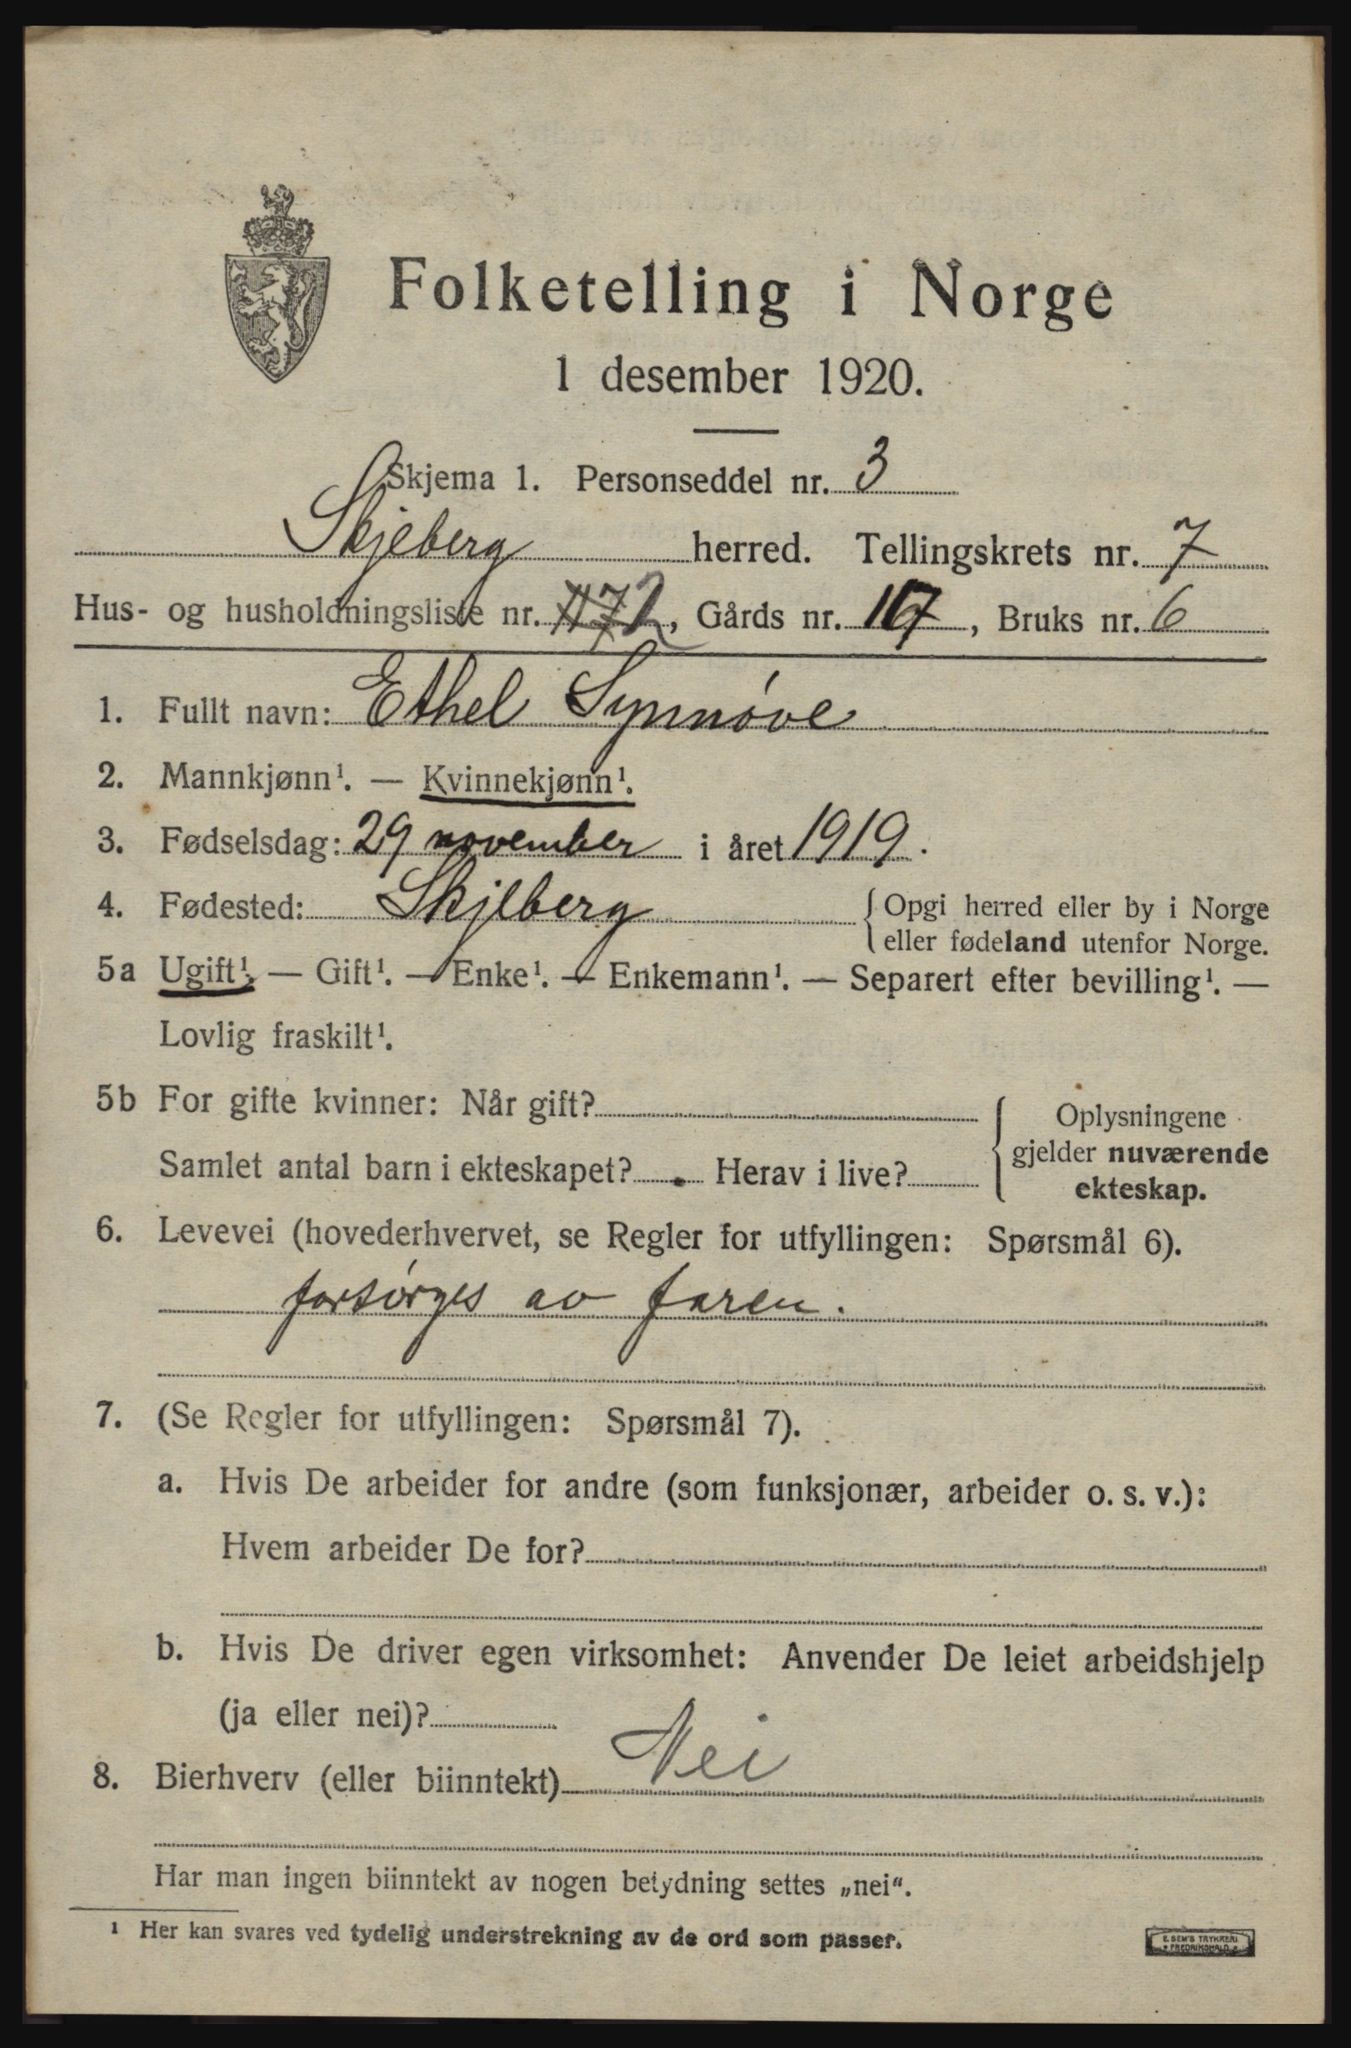 Folketelling i Norge
1 desember 1920.
Skjema 1. Personseddel nr. 3
Skjeberg herred. Tellingskrets nr. 7
Hus- og husholdningsliste nr. 72, Gårds nr. 17, Bruks nr. 6
1. Fullt navn: Ethel Synnøve
2. Mannkjønn¹. — Kvinnekjønn¹.
3. Fødselsdag: 29 november i året 1919.
4. Fødested: Skjeberg { Opgi herred eller by i Norge
eller fødeland utenfor Norge.
5a Ugift¹. — Gift¹. — Enke¹. — Enkemann¹. — Separert efter bevilling¹. —
Lovlig fraskilt¹.
5b For gifte kvinner: Når gift? { Oplysningene
gjelder nuværende
ekteskap.
Samlet antal barn i ekteskapet? Herav i live?
6. Levevei (hovederhvervet, se Regler for utfyllingen: Spørsmål 6).
forsørges av faren.
7. (Se Regler for utfyllingen: Spørsmål 7).
a. Hvis De arbeider for andre (som funksjonær, arbeider o. s. v.):
Hvem arbeider De for?
b. Hvis De driver egen virksomhet: Anvender De leiet arbeidshjelp
(ja eller nei)?
8. Bierhverv (eller biinntekt) Nei
Har man ingen biinntekt av nogen betydning settes „nei“.
¹ Her kan svares ved tydelig understrekning av de ord som passer.
E. SEM'S TRYKKERI
FREDRIKSHALD